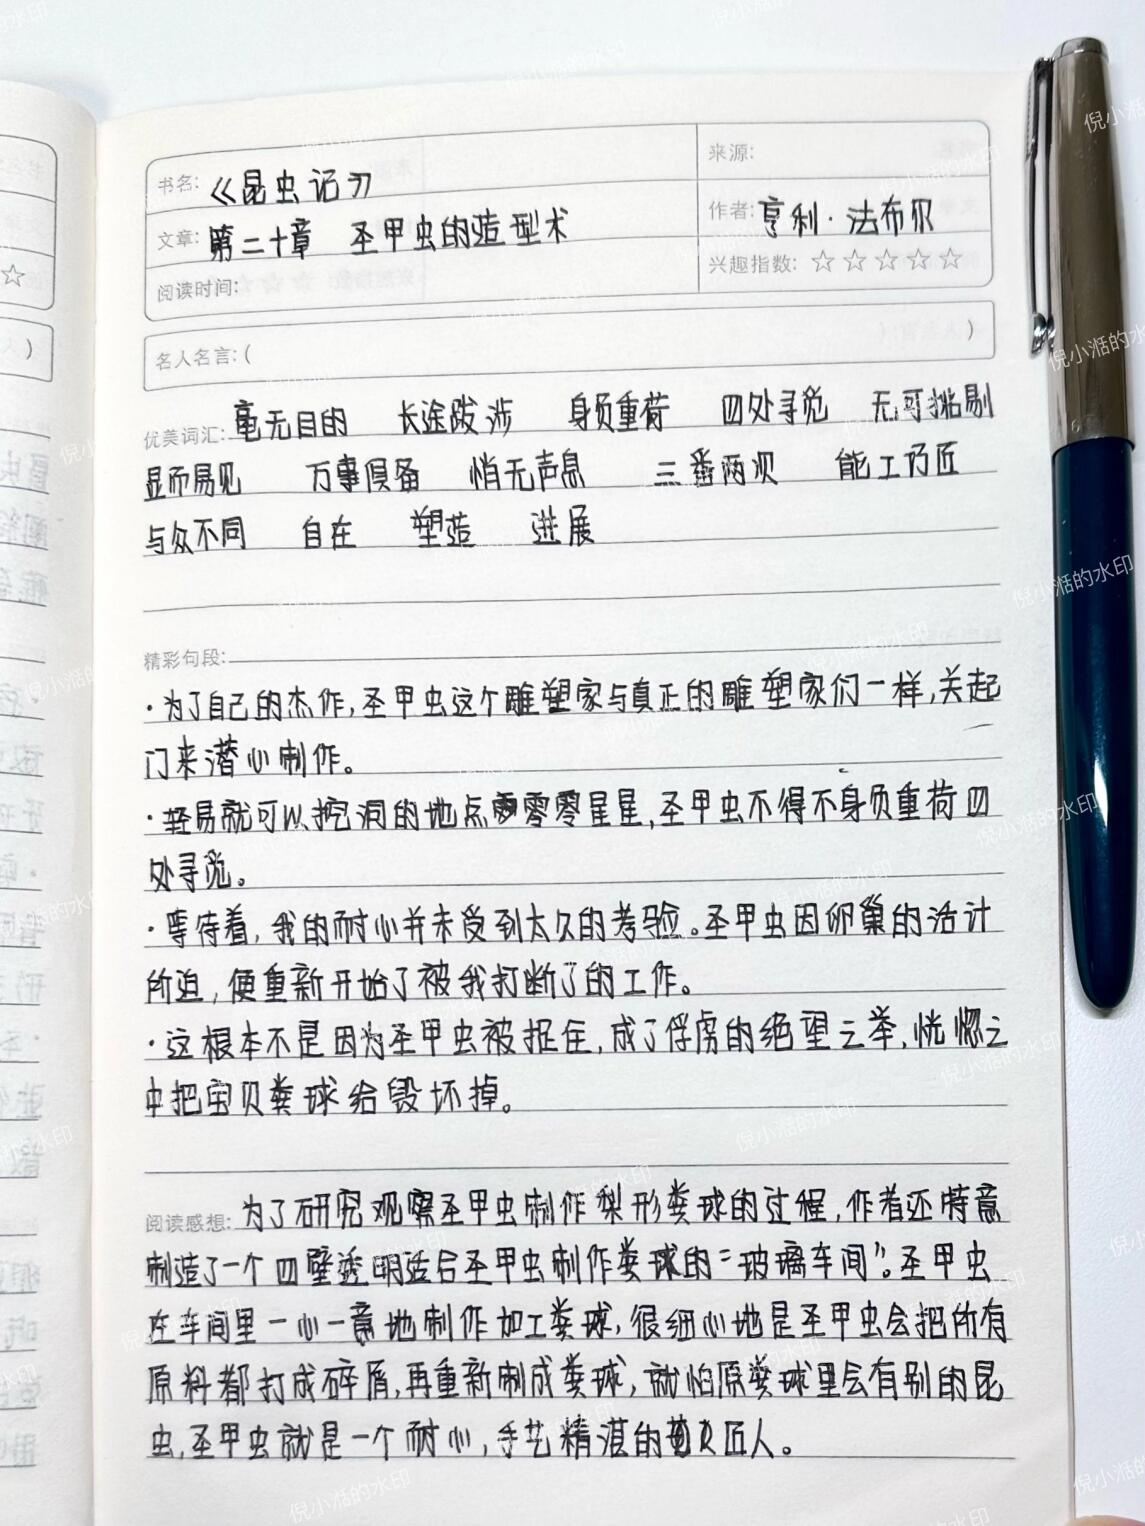 书名:《昆虫记》
来源:
文章:第二十章 圣甲虫的造型术
作者:亨利·法布尔
阅读时间:
兴趣指数:☆☆☆☆☆
名人名言:( )
优美词汇:毫无目的 长途跋涉 身负重荷 四处寻觅 无可挑剔
显而易见 万事俱备 悄无声息 三番两次 能工巧匠
与众不同 自在 塑造 进展
精彩句段:
·为了自己的杰作,圣甲虫这个雕塑家与真正的雕塑家们一样,关起
门来潜心制作。
·轻易就可以挖洞的地点零零星星,圣甲虫不得不身负重荷四
处寻觅。
·等待着,我的耐心并未受到太久的考验。圣甲虫因卵巢的活计
所迫,便重新开始了被我打断了的工作。
·这根本不是因为圣甲虫被捉住,成了俘虏的绝望之举,恍惚之
中把宝贝粪球给毁坏掉。
阅读感想:为了研究观察圣甲虫制作梨形粪球的过程,作者还特意
制造了一个四壁透明适合圣甲虫制作粪球的“玻璃车间”。圣甲虫
在车间里一心一意地制作加工粪球,很细心地是圣甲虫会把所有
原料都打成碎屑,再重新制成粪球,就怕原粪球里会有别的昆
虫,圣甲虫就是一个耐心,手艺精湛的匠人。
倪小湉的水印